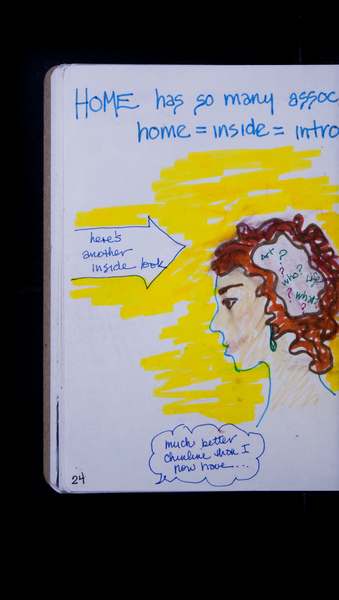 HOME has so many assoc
home = inside = intro
here's
another
inside look
Art ?
?
who? Life
?
what?
?
much better
chinline than I
now have...
24